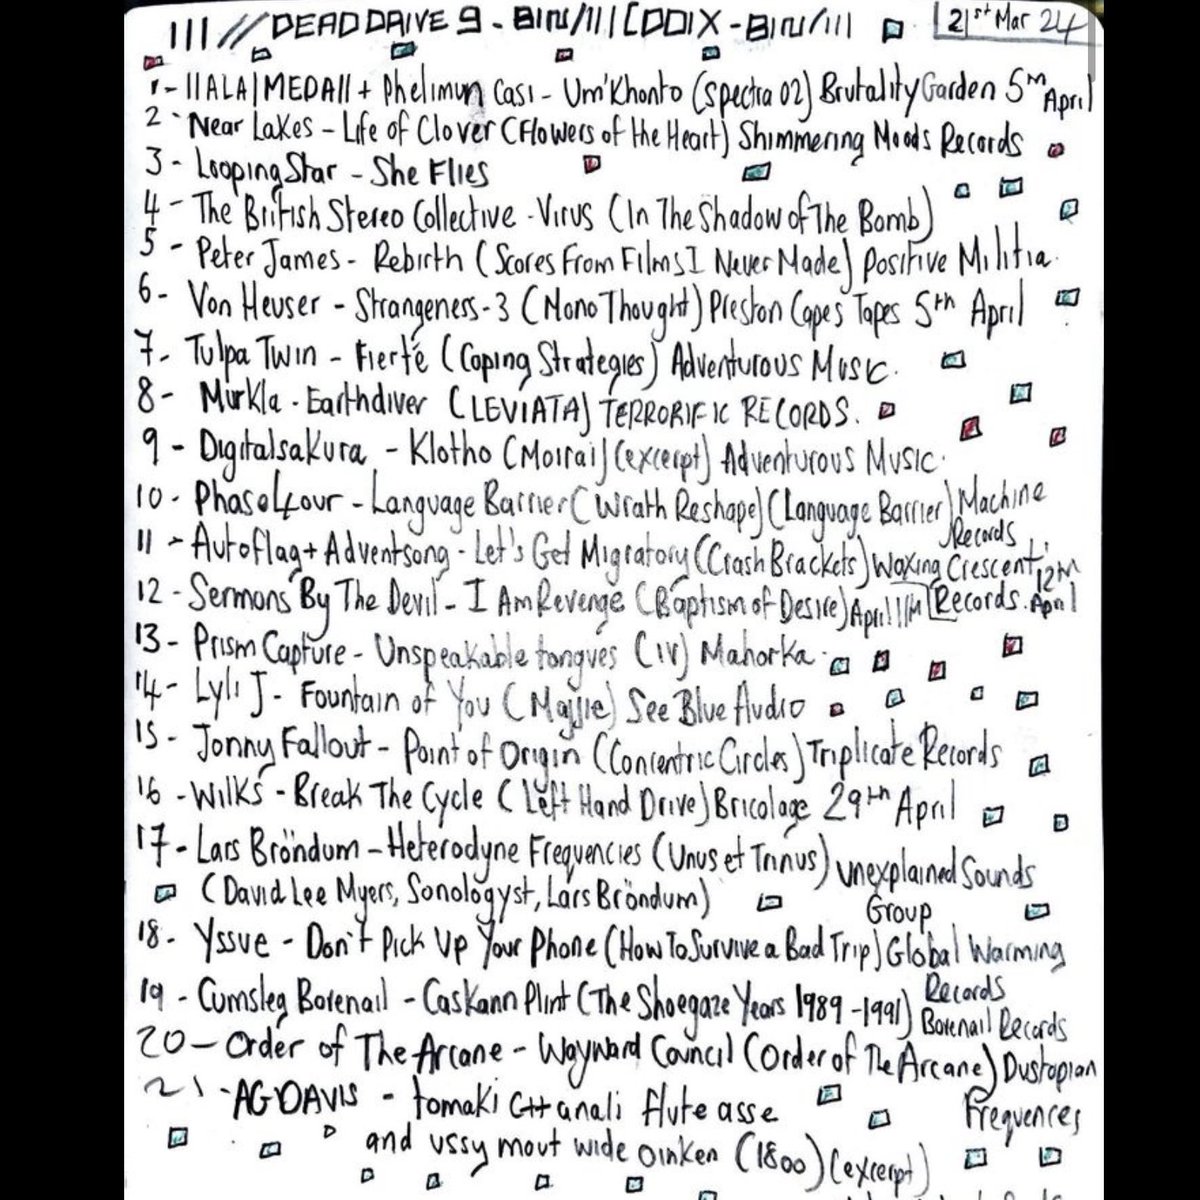 III//DEAD DRIVE 9 - BIN/III CDDIX - BIN/III 21st Mar 24
1 - IIALA|MEDAII + Phelimun Casi - Um'Khonto (Spectra 02) Brutality Garden 5th April
2 - Near Lakes - Life of Clover (Flowers of the Heart) Shimmering Moods Records
3 - Looping Star - She Flies
4 - The British Stereo Collective - Virus (In The Shadow of The Bomb)
5 - Peter James - Rebirth (Scores From Films I Never Made) Positive Militia
6 - Von Heuser - Strangeness-3 (Mono Thought) Preston Capes Tapes 5th April
7 - Tulpa Twin - Fierté (Coping Strategies) Adventurous Music.
8 - Murkla - Earthdiver (LEVIATA) TERRORIFIC RECORDS.
9 - Digitalsakura - Klotho (Moirai) (excerpt) Adventurous Music.
10 - Phase4our - Language Barrier (Wrath Reshape) (Language Barrier) Machine
Records
11 - Autoflag + Adventsong - Let's Get Migratory (Crash Brackets) Waxing Crescent
Records. 12th April
12 - Sermons By The Devil - I Am Revenge (Baptism of Desire) April 11th
13 - Prism Capture - Unspeakable tongues (IV) Mahorka
14 - Lyli J - Fountain of You (Majjie) See Blue Audio
15 - Jonny Fallout - Point of Origin (Concentric Circles) Triplicate Records
16 - Wilks - Break The Cycle (Left Hand Drive) Bricolage 29th April
17 - Lars Bröndum - Heterodyne Frequencies (Unus et Trinus) Unexplained Sounds
(David Lee Myers, Sonologyst, Lars Bröndum) Group
18 - Yssue - Don't Pick Up Your Phone (How To Survive a Bad Trip) Global Warming
Records
19 - Cumsleg Borenail - Caskann Plint (The Shoegaze Years 1989-1991) Borenail Records
20 - Order of The Arcane - Wayward Council (Order of The Arcane) Dustopian
Frequences
21 - AG DAVIS - tomaki C++ anali flute asse
and ussy mout wide oinken (1800) (excerpt)